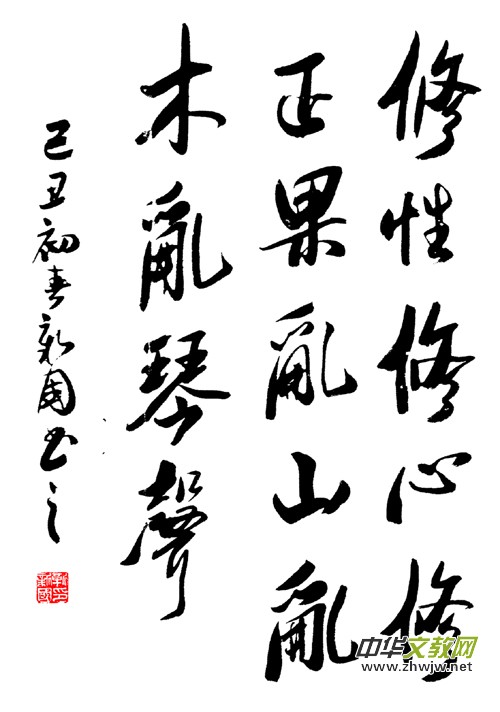 修性修心修
正果亂山亂
木亂琴聲
己丑初春新国书之
中华文教网
www.zhwjw.net